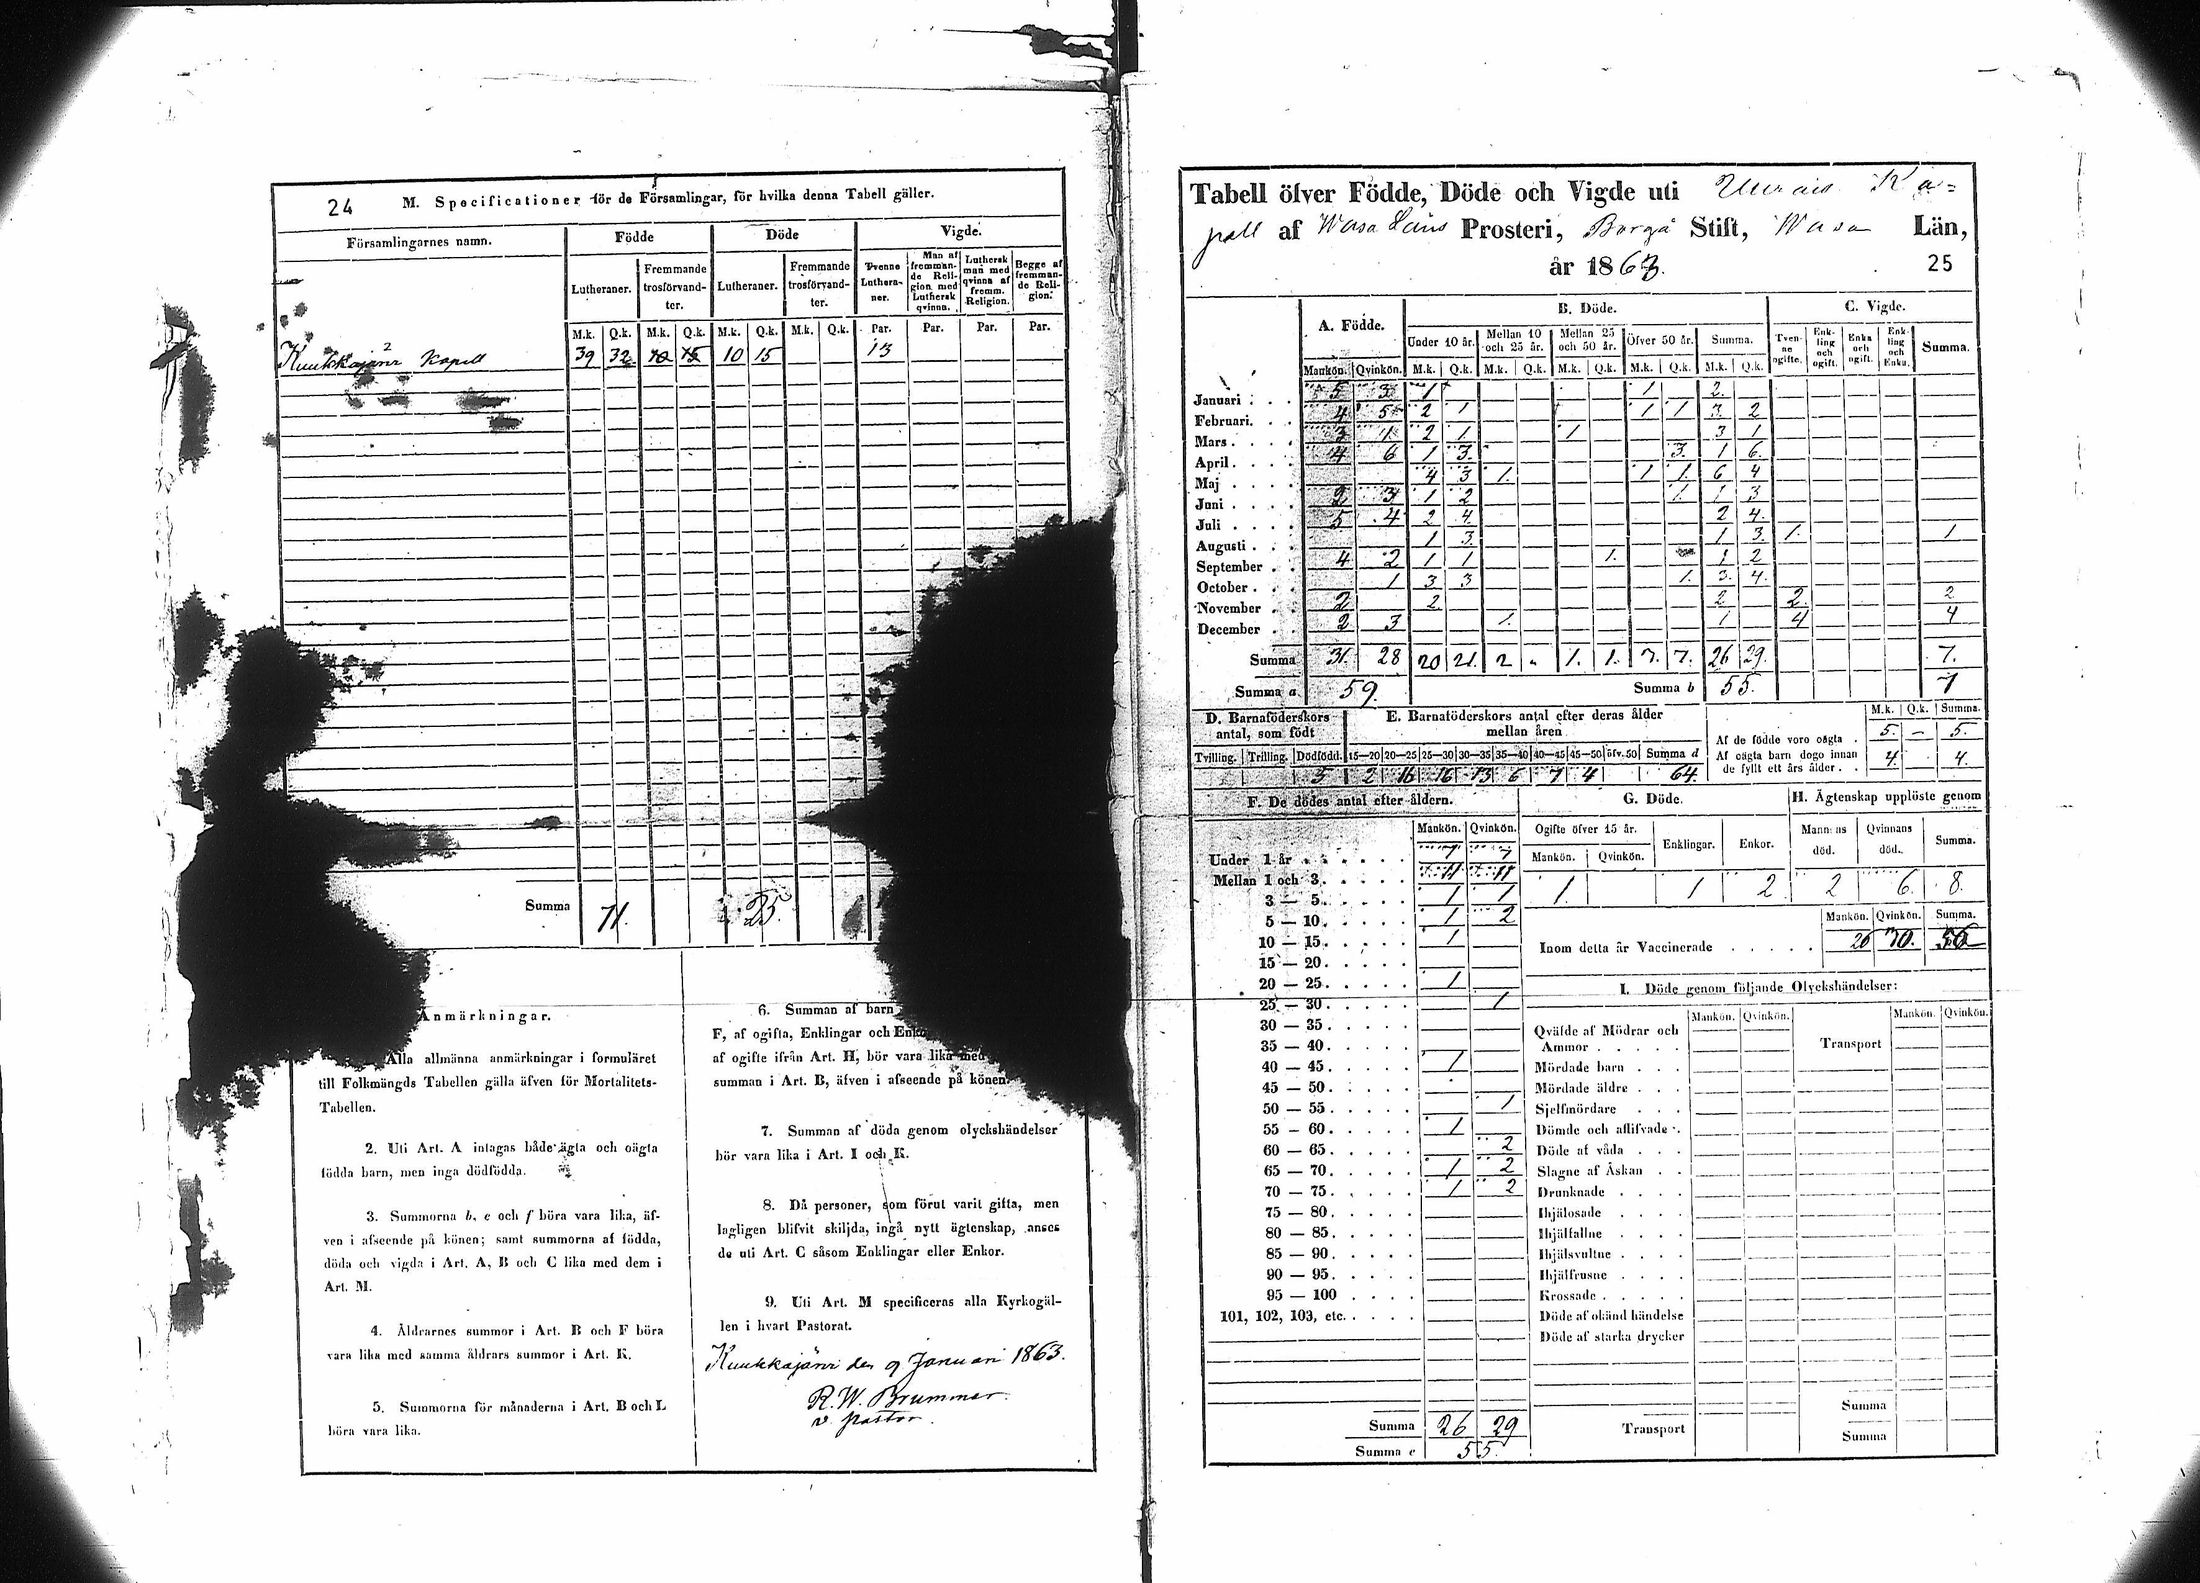 24 M. Specificationer för de Församlingar, för hvilka denna Tabell gäller.
Församlingarnes namn. Födde Döde Vigde.
Lutheraner. Fremmande trosförvandter. Lutheraner. Fremmande trosförvandter. Tvenne Lutheraner. Man af fremmande Religion med Luthersk qvinna. Luthersk man med qvinna af fremm. Religion. Begge af fremmande Religion.
M.k. Q.k. M.k. Q.k. M.k. Q.k. M.k. Q.k. Par. Par. Par. Par.
Kuukkajärvi Kapell 39 32 10 15 10 15 13
Summa 71. 25.
Anmärkningar.
Alla allmänna anmärkningar i formuläret
till Folkmängds Tabellen gälla äfven för Mortalitets-
Tabellen.
2. Uti Art. A intagas både ägta och oägta
födda barn, men inga dödfödda.
3. Summorna b, e och f böra vara lika, äf-
ven i afseende på könen; samt summorna af födda,
döda och vigda i Art. A, B och C lika med dem i
Art. M.
4. Åldrarnes summor i Art. B och F böra
vara lika med samma åldrars summor i Art. K.
5. Summorna för månaderna i Art. B och L
böra vara lika.
6. Summan af barn
F, af ogifta, Enklingar och
af ogifte ifrån Art. H, bör vara lika med
summan i Art. B, äfven i afseende på könen.
7. Summan af döda genom olyckshändelser
bör vara lika i Art. I och K.
8. Då personer, som förut varit gifta, men
lagligen blifvit skiljda, ingå nytt ägtenskap, anses
de uti Art. C såsom Enklingar eller Enkor.
9. Uti Art. M specificeras alla Kyrkogäl-
len i hvart Pastorat.
Kuukkajärvi den 9 Januari 1863.
R. W. Brummer
v. pastor.
Tabell öfver Födde, Döde och Vigde uti Ka=
pell af Wasa Läns Prosteri, Borgå Stift, Wasa Län,
år 186 25
A. Födde. B. Döde. C. Vigde.
Under 10 år. Mellan 10 och 25 år. Mellan 25 och 50 år. Öfver 50 år. Summa. Tvenne ogifte. Enkling och ogift. Enka och ogift. Enkling och Enka. Summa.
Mankön. Qvinkön. M.k. Q.k. M.k. Q.k. M.k. Q.k. M.k. Q.k. M.k. Q.k.
Januari 5 3 1 1 2.
Februari. 4 5 2 1 1 1 3 2
Mars 3 1 2 1 1 3 1
April 4 6 1 3 3. 1 6
Maj 4 3 1. 1 1. 6 4
Juni 2 3 1 2 1. 1 3
Juli 5 4 2 4 2 4.
Augusti 1 3. 1 3. 1. 1
September 4 2 1 1 1. 1 2
October 1 3 3 1. 3. 4.
November 2 2. 2 2. 2
December 2 3 1. 1 4 4
Summa 31. 28 20 21. 2 „ 1. 1. 3. 7. 26 29. 7.
Summa a 59. Summa b 55. 7
D. Barnaföderskors antal, som födt
Tvilling. Trilling. Dödfödd.
5
E. Barnaföderskors antal efter deras ålder mellan åren
15—20 20—25 25—30 30—35 35—40 40—45 45—50 öfv. 50 Summa d
2 16 16 13 6 7 4 64.
M.k. Q.k. Summa.
Af de födde voro oägta 5. — 5.
Af oägta barn dogo innan de fyllt ett års ålder 4 4.
F. De dödes antal efter åldern.
Mankön. Qvinkön.
Under 1 år 7 7
Mellan 1 och 3. 11 11
3 — 5. 1 1
5 — 10. 1 2
10 — 15. 1
15 — 20.
20 — 25. 1
25 — 30. 1
30 — 35.
35 — 40.
40 — 45. 1
45 — 50.
50 — 55. 1
55 — 60. 1
60 — 65. 2
65 — 70. 1 2
70 — 75. 1 2
75 — 80.
80 — 85.
85 — 90.
90 — 95.
95 — 100
101, 102, 103, etc.
Summa 26 29
Summa e 55.
G. Döde.
Ogifte öfver 15 år. Enklingar. Enkor.
Mankön. Qvinkön.
1. 1 2
H. Ägtenskap upplöste genom
Mannens död. Qvinnans död. Summa.
2 6. 8.
Mankön. Qvinkön. Summa.
Inom detta år Vaccinerade 26 30. 56
I. Döde genom följande Olyckshändelser:
Mankön. Qvinkön. Mankön. Qvinkön.
Qväfde af Mödrar och Ammor Transport
Mördade barn
Mördade äldre
Sjelfmördare
Dömde och aflifvade
Döde af våda
Slagne af Åskan
Drunknade
Ihjälosade
Ihjälfallne
Ihjälsvultne
Ihjälfrusne
Krossade
Döde af okänd händelse
Döde af starka drycker
Summa
Transport Summa